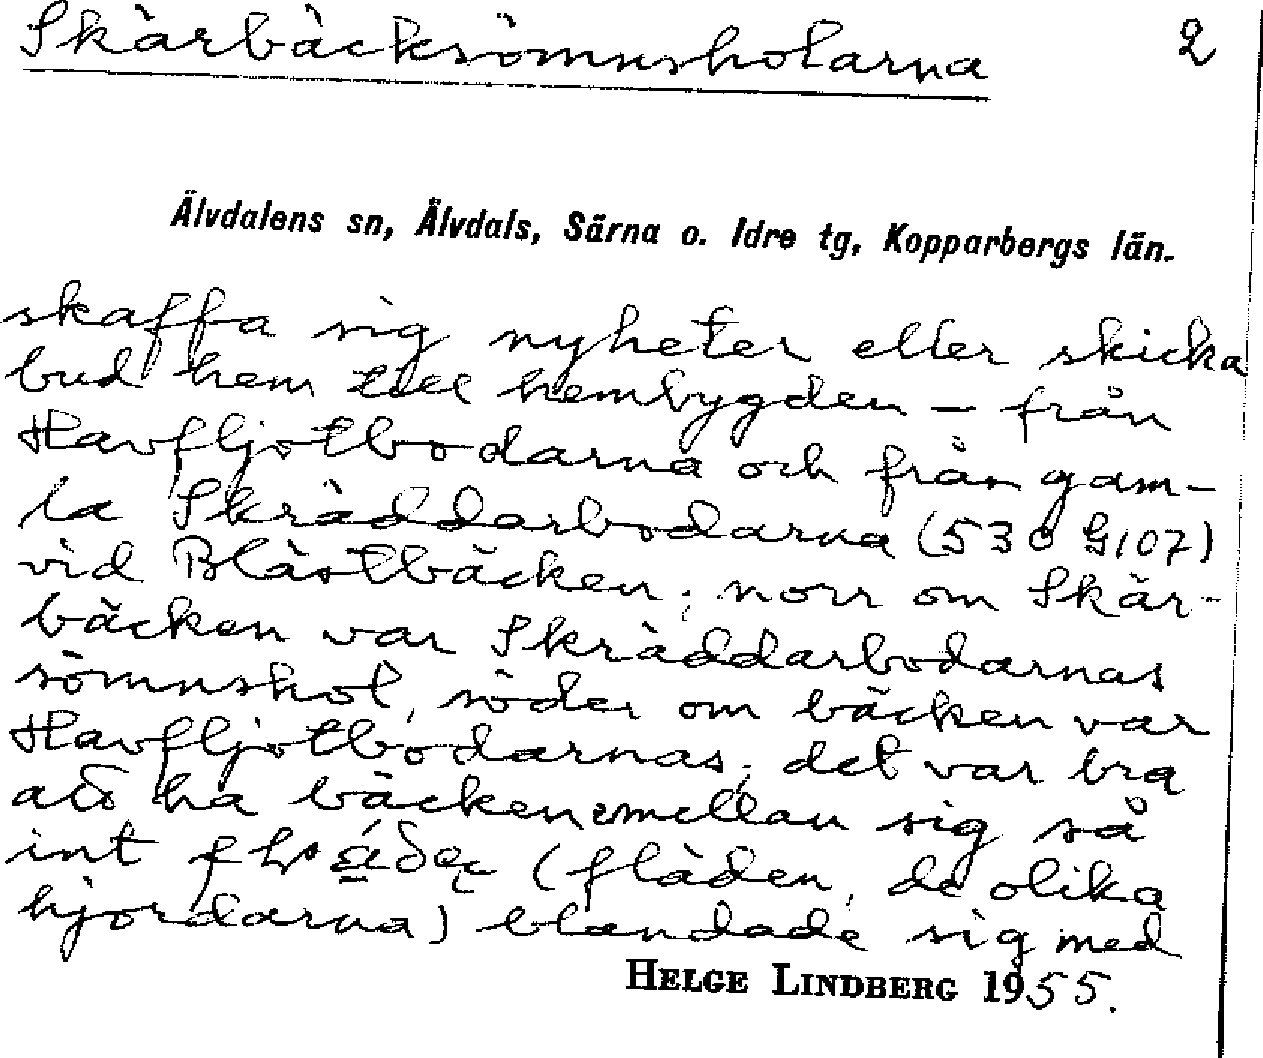 Skärbäcksömnsholarna 2
Älvdalens sn, Älvdals, Särna o. Idre tg, Kopparbergs län.
skaffa sig nyheter eller skicka
bud hem till hembygden – från
Havfljotbodarna och från gam-
la Skräddarbodarna (530 G107)
vid Blästbäcken; norr om Skär-
bäcken var Skräddarbodarnas
sömnshol, söder om bäcken var
Havfljotbodarnas; det var bra
att ha bäcken emellan sig så
int (fläden, de olika
hjordarna) blandade sig med
HELGE LINDBERG 1955.